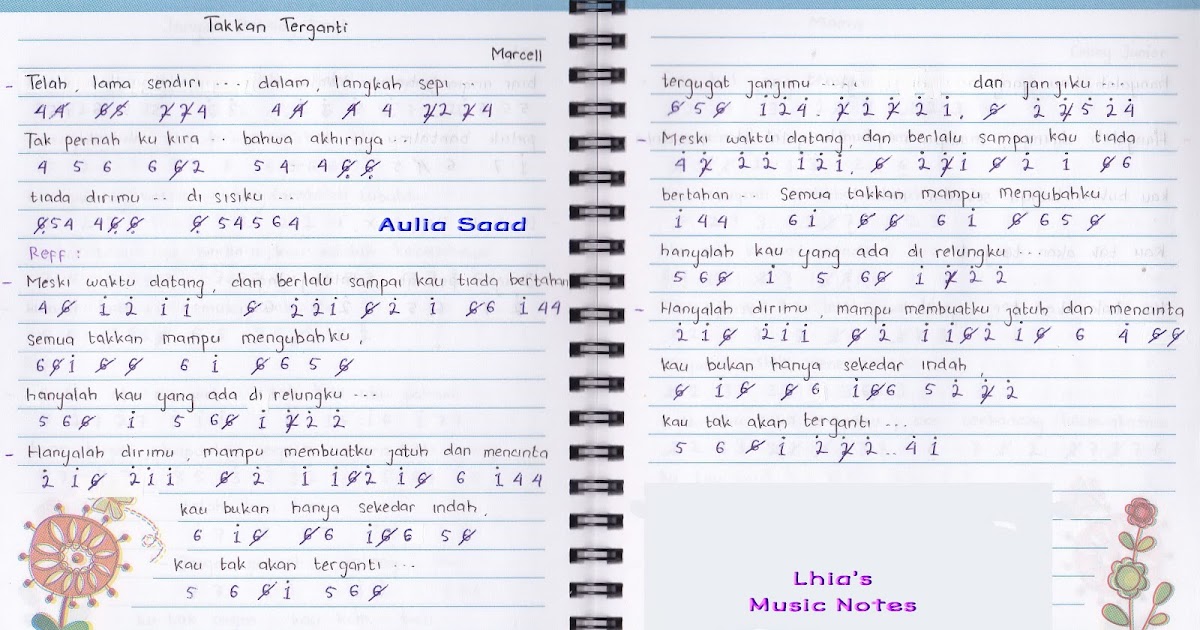 Takkan Terganti
Marcell
- Telah, lama sendiri ... dalam, langkah sepi ...
44 65 774 4 4 4 4 72 7 4
Tak pernah ku kira ... bahwa akhirnya ...
4 5 6 6 6 2 5 4 4 6 6
tiada dirimu .. di sisiku ..
654 466 6 5 4 5 6 4
Aulia Saad
Reff :
- Meski waktu datang, dan berlalu sampai kau tiada bertahan
4 6 i 2 i i 6 2 2 i 6 2 i 6 6 i 4 4
semua takkan mampu mengubahku,
6 6 i 6 6 6 i 6 6 5 6
hanyalah kau yang ada di relungku ...
5 6 6 i 5 6 6 i 2 2 2
- Hanyalah dirimu, mampu membuatku jatuh dan mencinta
2 i 6 2 i i 6 2 i i 6 2 i 6 6 i 4 4
kau bukan hanya sekedar indah,
6 i 6 6 6 i 6 6 5 6
kau tak akan terganti ...
5 6 6 i 5 6 6
tergugat janjimu .... dan janjiku ....
6 5 6 i 2 4. 2 i 2 2 i. 6 2 2 5 2 4
- Meski waktu datang, dan berlalu sampai kau tiada
4 2 2 2 i 2 i. 6 2 2 i 6 2 i 6 6
bertahan .. Semua takkan mampu mengubahku
i 4 4 6 i 6 6 6 i 6 6 5 6
hanyalah kau yang ada di relungku ...
5 6 6 i 5 6 6 i 2 2 2
- Hanyalah dirimu, mampu membuatku jatuh dan mencinta
2 i 6 2 i i 6 2 i i 6 2 i 6 6 4 6 6
kau bukan hanya sekedar indah,
6 i 6 6 6 i 6 6 5 2 2 2
kau tak akan terganti ...
5 6 6 i 2 2 2 .. 4 i
Lhia's
Music Notes